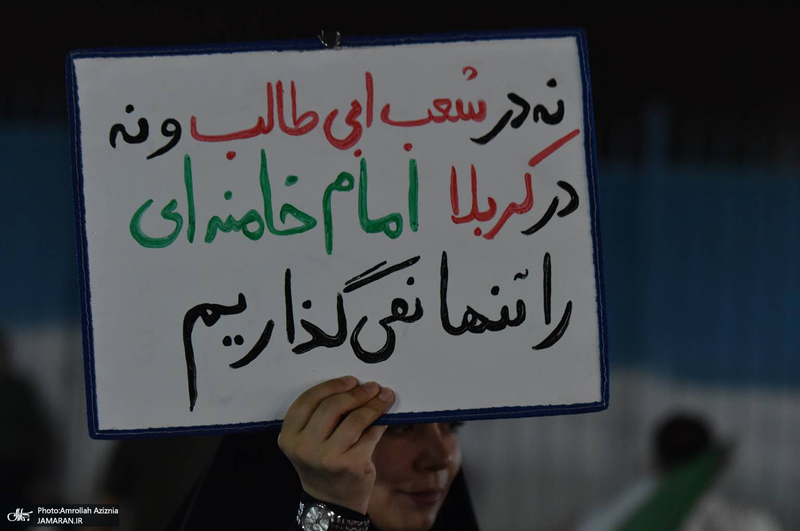 نه در شعب ابی طالب و نه
در کربلا امام خامنه ای
را تنها نمی گذاریم
Photo:Amrollah Aziznia
JAMARAN.IR